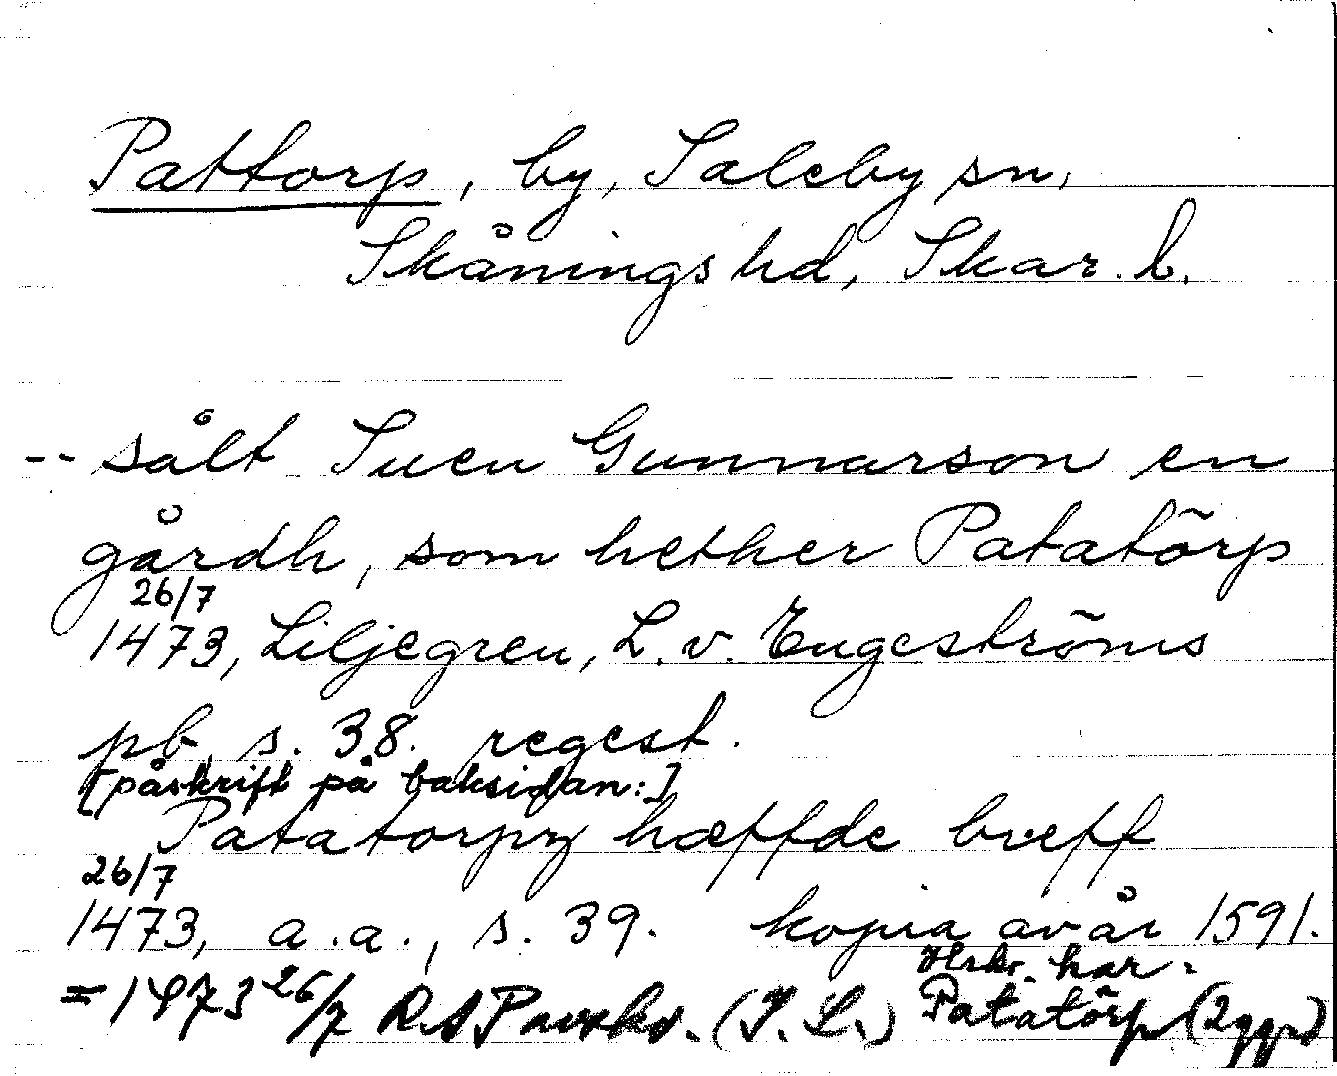 Pattorp, by, Saleby sn,
Skånings hd, Skar. l.
-- sålt Suen Gunnarson en
gårdh, som hether Patatörp
26/7
1473, Liljegren, L. v. Engeströms
pb, s. 38. regest.
[påskrift på baksidan:]
Patatorpz hæffde breff
26/7
1473, a.a., s. 39. kopia av år 1591.
Hskr. har
= 1473 26/7 RAP avskr. (I. L.) Patatörp (2 ggr)